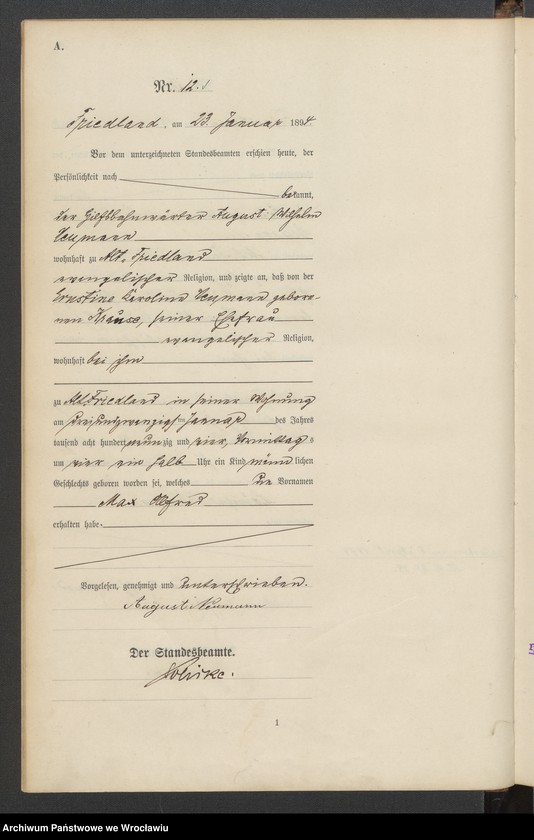 A.
Nr. 12.
Friedland, am 23. Januar 1894.
Vor dem unterzeichneten Standesbeamten erschien heute, der
Persönlichkeit nach
bekannt,
der Hilfsbahnwärter August Wilhelm
Neumann
wohnhaft zu Alt-Friedland
evangelischer Religion, und zeigte an, daß von der
Ernestine Karoline Neumann gebore-
nen Krause, seiner Ehefrau
evangelischer Religion,
wohnhaft bei ihm
zu Alt-Friedland in seiner Wohnung
am dreiundzwanzigsten Januar des Jahres
tausend acht hundert neunzig und vier, Vormittags
um vier ein halb Uhr ein Kind männlichen
Geschlechts geboren worden sei, welches die Vornamen
Max Alfred
erhalten habe.
Vorgelesen, genehmigt und unterschrieben.
August Neumann
Der Standesbeamte.
1
Archiwum Państwowe we Wrocławiu